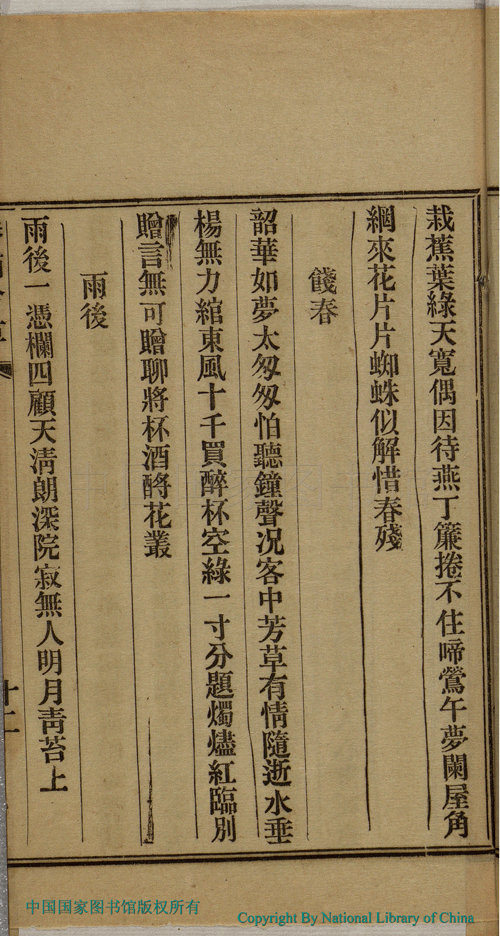 栽蕉葉綠天寬偶因待燕丁簾捲不住啼鶯午夢闌屋角
網來花片片蜘蛛似解惜春殘
餞春
韶華如夢太匆匆怕聽鐘聲况客中芳草有情隨逝水垂
楊無力綰東風十千買醉杯空綠一寸分題燭燼紅臨別
贈言無可贈聊將杯酒酹花叢
雨後
雨後一憑欄四顧天清朗深院寂無人明月靑苔上
十二
中国国家图书馆版权所有
Copyright By National Library of China